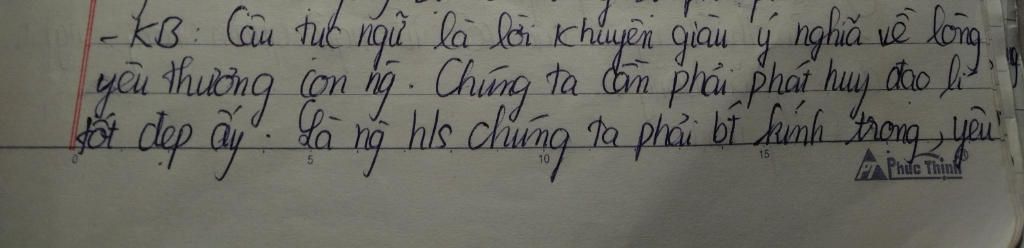 - KB: Câu tục ngữ là lời khuyên giàu ý nghĩa về lòng
yêu thương con ng. Chúng ta cần phải phát huy đạo lí
tốt đẹp ấy. Là ng hls chúng ta phải bt kính trọng, yêu
0 5 10 15
Phúc Thịnh